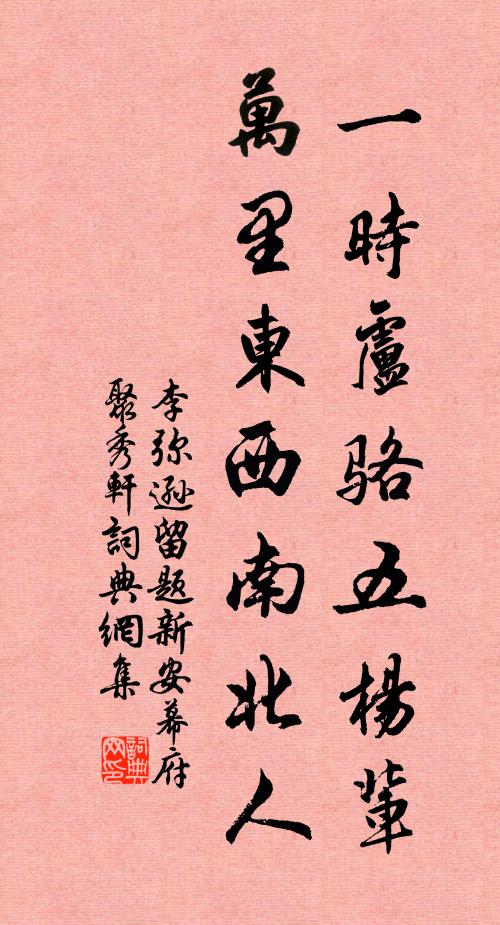 一時盧駱五楊輩
萬里東西南北人
李弥遜留題新安幕府
聚秀軒詞典網集
詞典网印